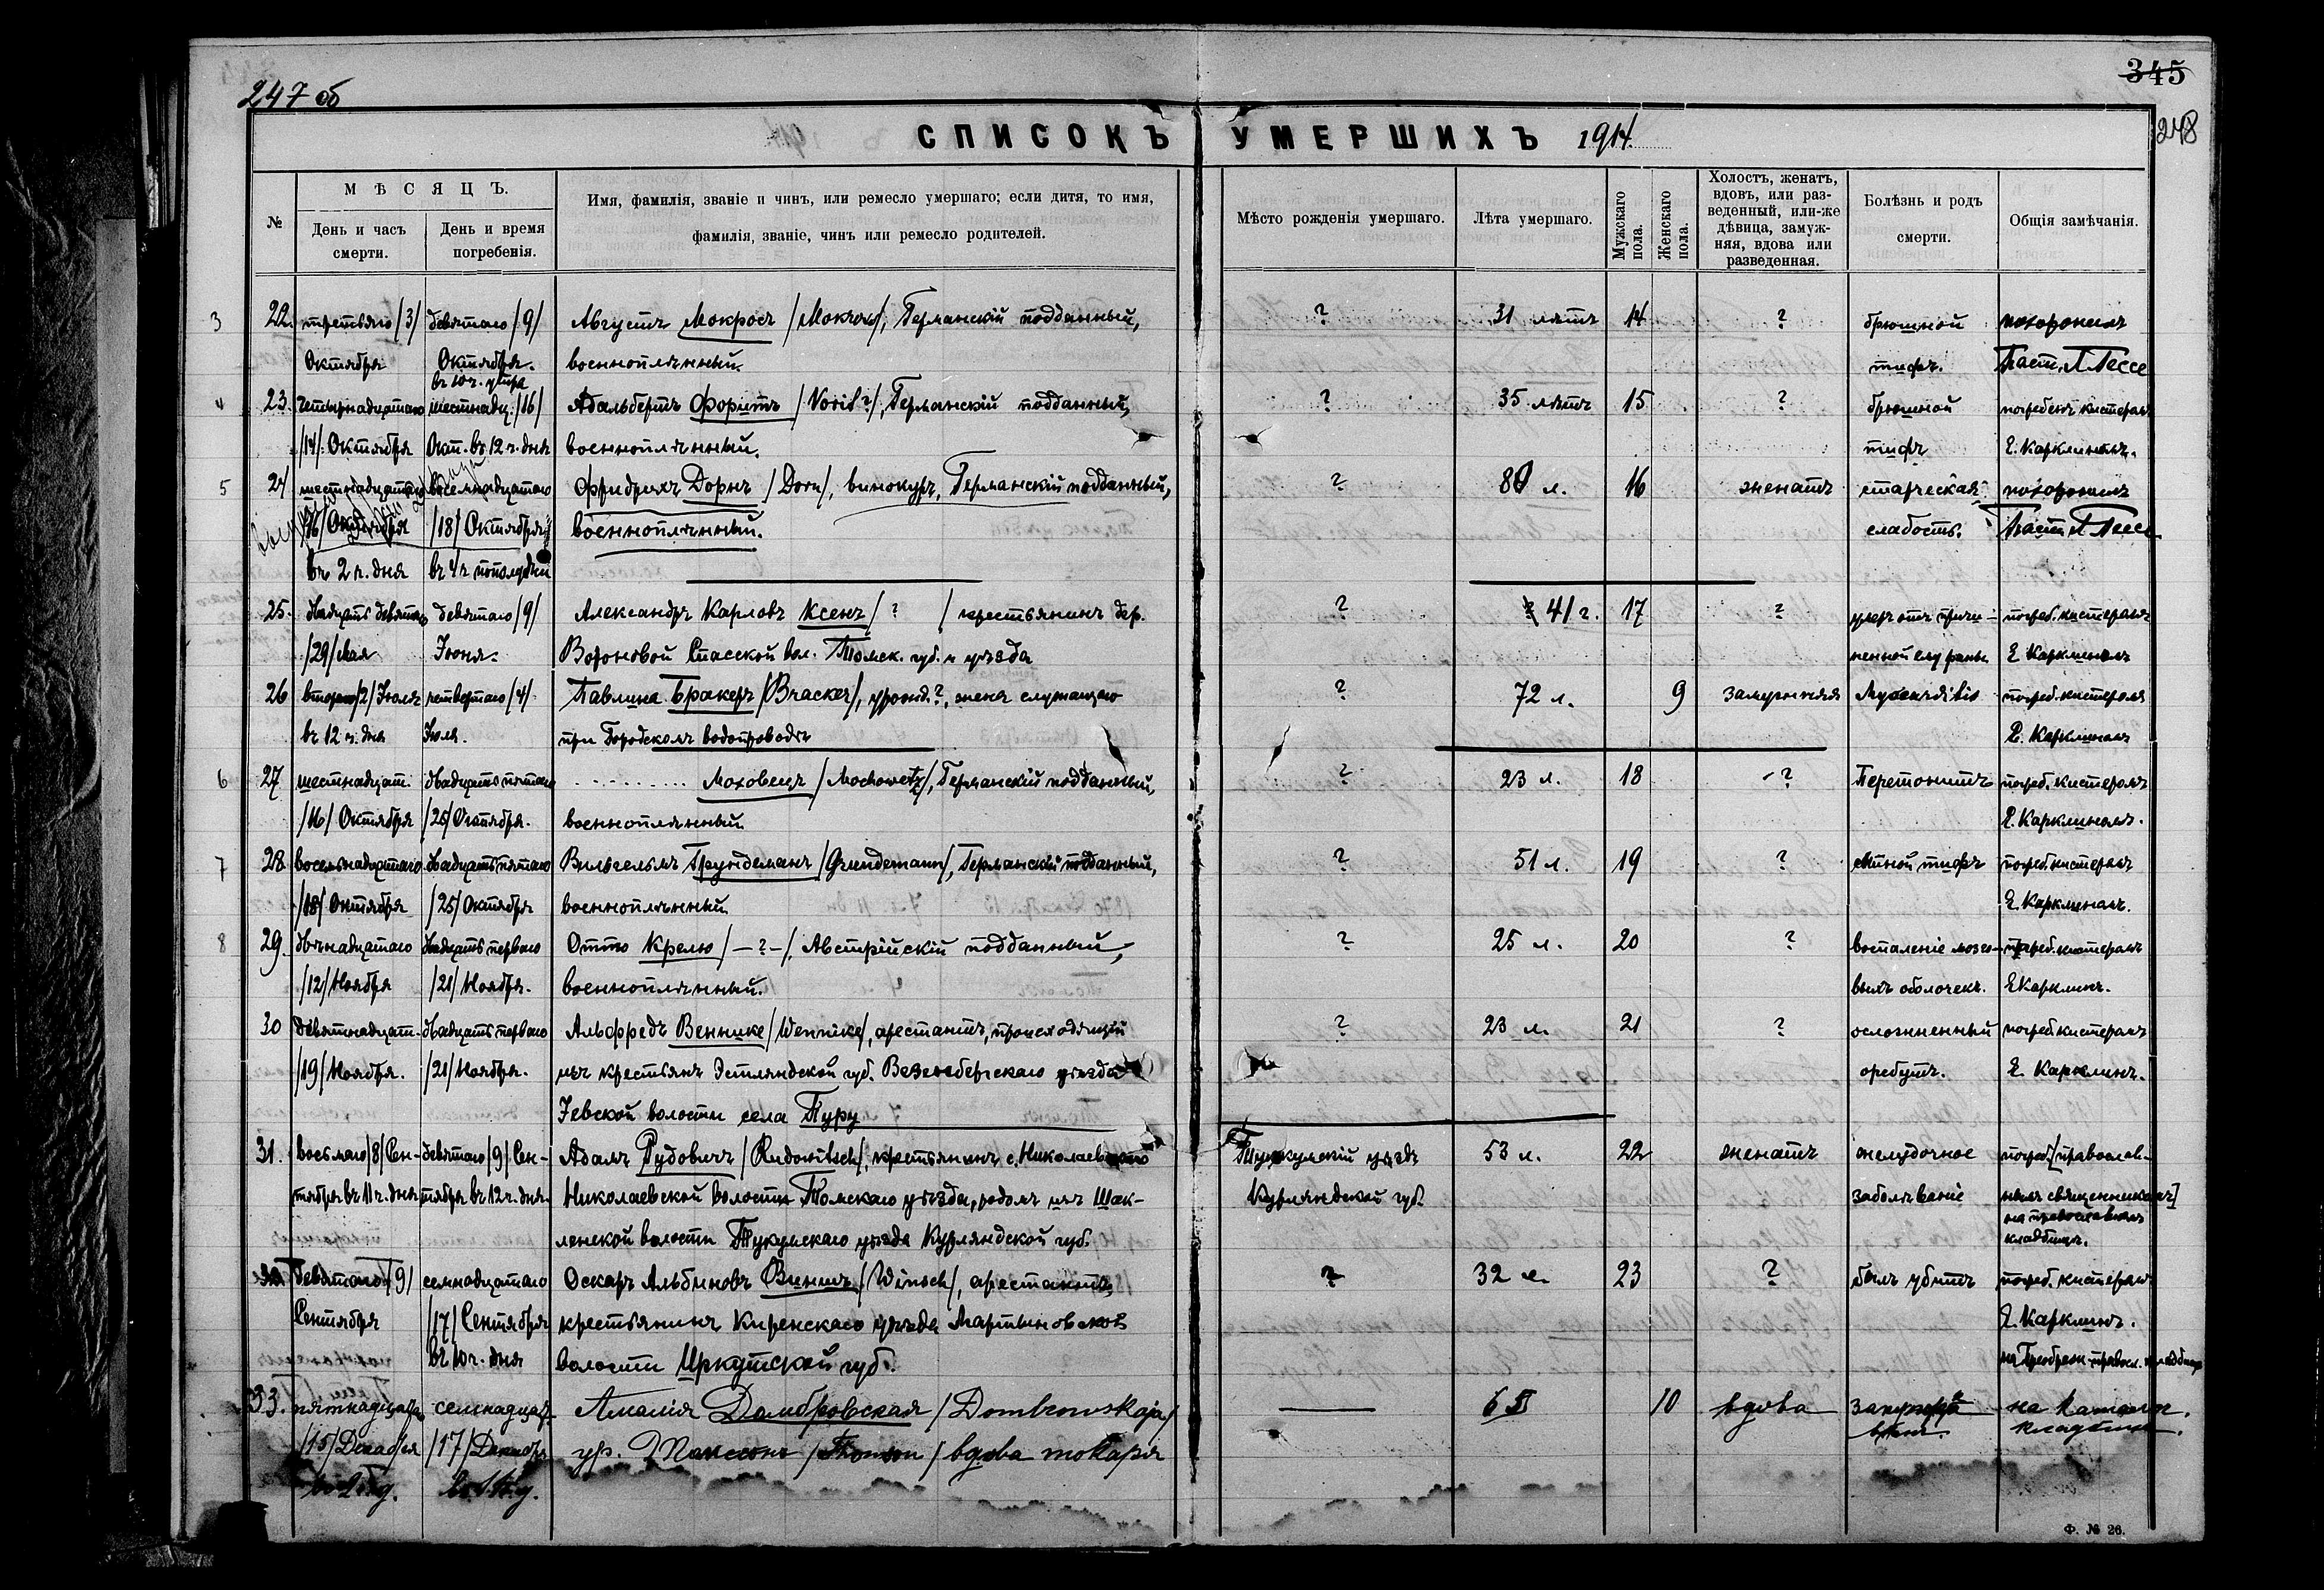 345
247 об
248
СПИСОКЪ УМЕРШИХЪ 1914
№
МѢСЯЦЪ.
День и часъ
смерти.
День и время
погребенія.
Имя, фамилія, званіе и чинъ, или ремесло умершаго; если дитя, то имя,
фамилія, званіе, чинъ или ремесло родителей.
Мѣсто рожденія умершаго.
Лѣта умершаго.
Мужскаго
пола.
Женскаго
пола.
Холостъ, женатъ,
вдовъ, или раз-
веденный, или-же
дѣвица, замуж-
няя, вдова или
разведенная.
Болѣзнь и родъ
смерти.
Общія замѣчанія.
3 22. третьяго /3/ девятаго /9/ Августъ Мокросъ /Mokross/, Германскій подданный, ? 31 лѣтъ 14 ? брюшной похоронилъ
Октября Октября. военноплѣнный. тифъ. Паст. Гессе
въ 10 ч. утра
4 23. четырнадцатаго шестнадц. /16/ Адальбертъ Форитъ /Vorit?/, Германскій подданный, ? 35 лѣтъ 15 ? брюшной погребенъ кистеромъ
/14/ Октября Окт. въ 12 ч. дня военноплѣнный. тифъ Е. Карклиномъ.
5 24 шестнадцатаго восемнадцатаго Фридрихъ Дорнъ /Dorn/, винокуръ, Германскій подданный, ? 80 л. 16 женатъ старческая похоронилъ
/16/ Октября /18/ Октября военноплѣнный. слабость. Паст. Гессе
въ 2 ч. дня въ 4 ч. пополудни
25. двадцать девятаго девятаго /9/ Александръ Карловъ Ксенъ / ? / крестьянинъ дер. ? 41 г. 17 ? умеръ отъ причи- погреб. кистеромъ
/29/ мая Іюня. Вороновой Спасской вол. Томск. губ. и уѣзда ненной ему раны Е. Карклиномъ
26 второго /2/ Іюля четвертаго /4/ Павлина Бракеръ /Bracker/, урожд. ?, жена служащаго ? 72 л. 9 замужняя Myocarditis погреб. кистеромъ
въ 12 ч. дня Іюля. при Городскомъ водопроводѣ Е. Карклиномъ
6 27 шестнадцат. двадцать пятаго .......... Моховецъ /Mochowetz/, Германскій подданный, ? 23 л. 18 ? Перетонитъ погреб. кистеромъ
/16/ Октября /25/ Октября. военноплѣнный Е. Карклиномъ.
7 28. восемнадцатаго двадцать пятаго Вильгельмъ Грундеманъ /Grundemann/, Германскій подданный, ? 51 л. 19 ? сыпной тифъ погреб. кистеромъ
/18/ Октября /25/ Октября военноплѣнный Е. Карклиномъ.
8 29. двѣнадцатаго двадцать перваго Отто Крелю /-?-/, Австрійскій подданный, ? 25 л. 20 ? воспаленіе мозго- погреб. кистеромъ
/12/ Ноября /21/ Ноября. военноплѣнный. выхъ оболочекъ. Е. Карклинъ.
30 девятнадцат. двадцать перваго Альфредъ Веннике /Wennike/, арестантъ, происходящій ? 23 л. 21 ? осложненный погреб. кистеромъ
/19/ Ноября. /21/ Ноября. изъ крестьянъ Эстляндской губ. Везенбергскаго уѣзда скорбутъ. Е. Карклинъ.
Іевской волости села Туру
31. восьмого /8/ Сен- девятаго /9/ Сен- Адамъ Рудовичъ /Rudowitsch/, крестьянинъ с. Николаевскаго Туккумскій уѣздъ 53 л. 22 женатъ желудочное погреб. [православ-
тября въ 11 ч. дня тября въ 12 ч. дня. Николаевской волости Томскаго уѣзда, родомъ изъ Шек- Курляндской губ. заболѣваніе нымъ священникомъ]
ленской волости Туккумскаго уѣзда Курляндской губ. на православномъ
кладбищѣ.
32 девятаго /9/ семнадцатаго Оскаръ Альбиновъ Виншъ /Winsch/, арестантъ, ? 32 л. 23 ? былъ убитъ погреб. кистеромъ
Сентября /17/ Сентября крестьянинъ Киренскаго уѣзда Мартыновской Е. Карклинъ.
въ 10 ч. дня волости Иркутской губ. на Преображ. правосл. кладбищѣ
33. пятнадцат. семнадцат. Амалія Домбровская /Dombrowskaja/ — 10 вдова на Катол.
/15/ Декабря /17/ Декабря ур. Томсонъ /Thomson/ вдова токаря кладбищѣ.
Ф. № 26.